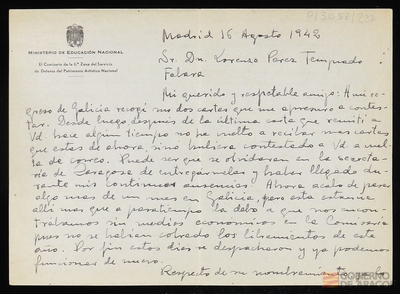 P13058/222
Madrid 16 Agosto 1942
MINISTERIO DE EDUCACIÓN NACIONAL
El Comisario de la 6.ª Zona del Servicio
de Defensa del Patrimonio Artístico Nacional
Sr. Dn. Lorenzo Perez Temprado
Fabara
Mi querido y respetable amigo: A mi re
greso de Galicia recogí sus dos cartas que me apresuro a contes-
tar. Desde luego despues de la última carta que remití a
Vd. hace algun tiempo no he vuelto a recibir mas cartas
que estas de ahora, sino hubiera contestado a Vd a vuel
ta de correo. Puede ser que se olvidaran en la secreta-
ria de Zaragoza de entregarmelas y haber llegado du-
rante mis continuas ausencias. Ahora acabo de pasar
algo mas de un mes en Galicia, pero esta estancia
alli mas que a pasatiempo la debo a que nos encon-
trabamos sin medios economicos en la Comisaria
pues no se habian cobrado los libramientos de este
año. Por fin estos dias se despacharon y ya podemos
funcionar de nuevo.
Respecto de su nombramiento
GOBIERNO
DE ARAGON